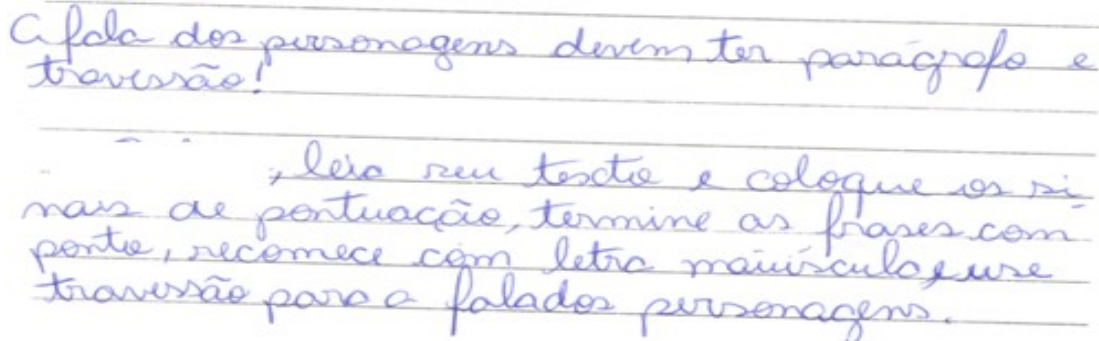 A fala dos personagens devem ter parágrafo e
travessão!
, leia seu texto e coloque os si
nais de pontuação, termine as frases com
ponto, recomece com letra maiúscula, e use
travessão para a fala dos personagens.